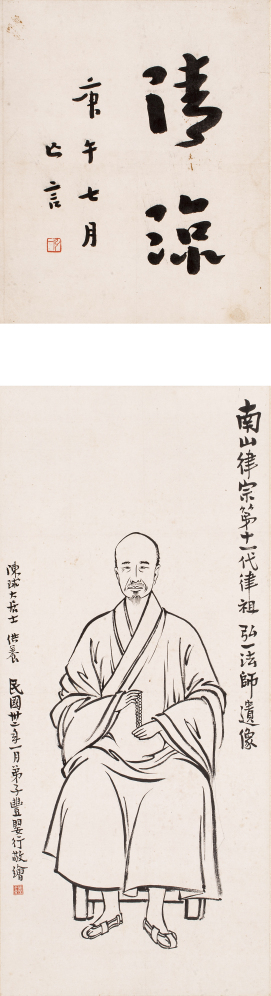 清涼
庚午七月
亡言
南山律宗第十一代律祖 弘一法師遺像
陳球大居士 供養
民國卅二年一月弟子豐嬰行敬繪